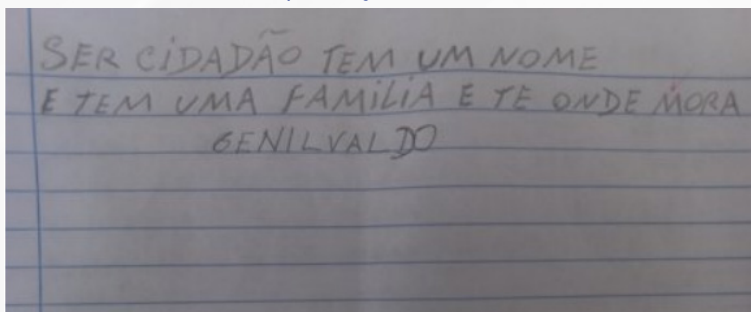 SER CIDADÃO TEM UM NOME
E TEM UMA FAMILIA E TE ONDE MORA
GENILVALDO